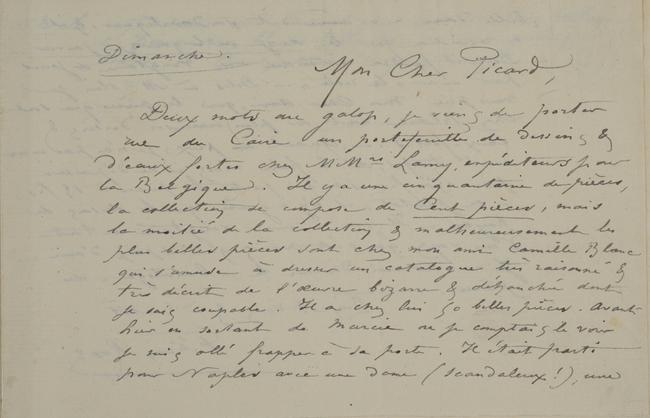 Dimanche.
Mon Cher Picard,
Deux mots au galop, je viens de porter
rue du Caire un portefeuille de dessins &
d'eaux fortes chez MMrs Lamy, expéditeurs pour
la Belgique. Il y a une cinquantaine de pièces,
la collection se compose de Cent pièces, mais
la moitié de la collection & malheureusement les
plus belles pièces sont chez mon ami Camille Blanc
qui s'amuse à dresser un catalogue très raisonné &
très décrit de l'œuvre bizarre & débauchée dont
je suis coupable. Il a chez lui 50 belles pièces. Avant-
hier en sortant de où je comptais le voir
je suis allé frapper à sa porte. Il était parti
pour Naples avec une dame (scandaleux!), une